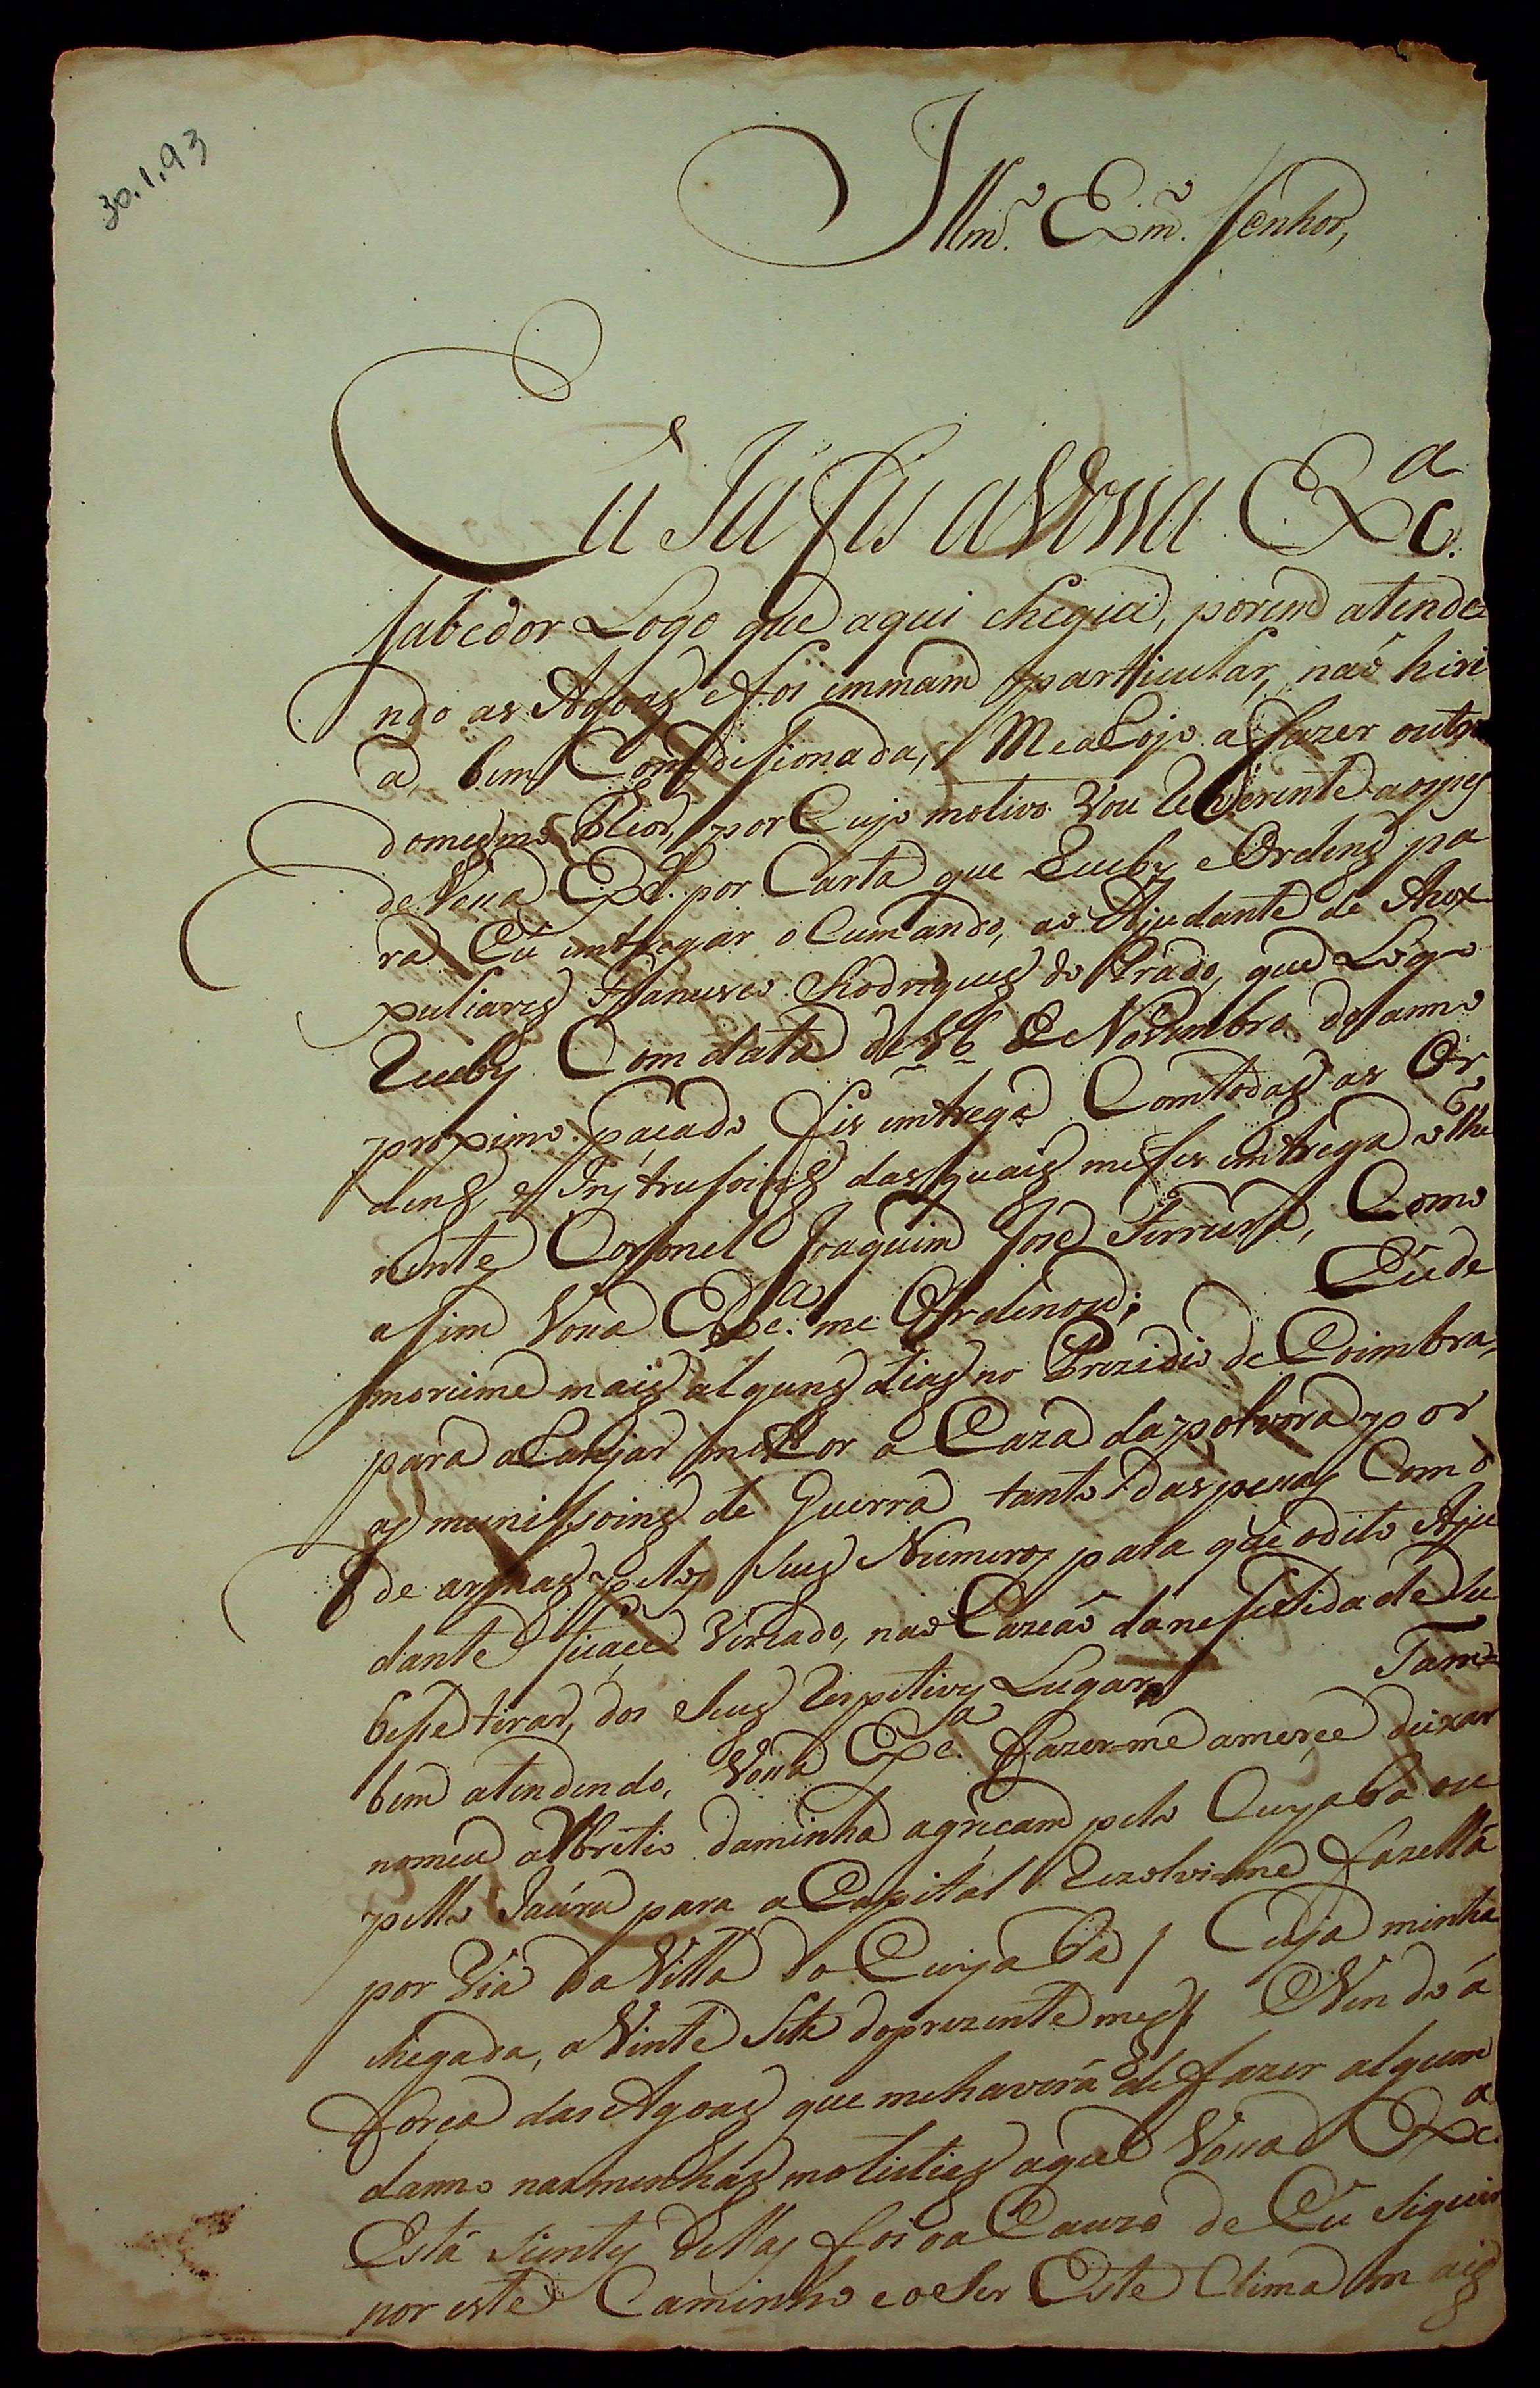 30.1.93
Illmo. Exmo. Senhor,
Eu Já fis a Vossa Exca.
sabedor Logo que aqui cheguei, porem atende=
ndo as Agoas e foi emmam particular, naõ hiri
a, bem Condisionada, Me alojo a fazer outra
do mesmo Theor, por Cujo motivo Vou Reverente aos pes
de Vossa Exca. por Carta que Resebÿ e Ordens pa
ra Eu entregar o Cumando, ao Ajudante de Aux
puliares Francisco Rodrigues do Prado, que Logo
Reseby Com data de 16 de Novembro do anno
proximo paçado fis entrega Com todas as Or
dens, e Instrusoins das quais me fes entrega o The
nente Coronel Joaquim José Ferreira, Como
asim Vossa Exca. me Ordenou; Eu de
moreime mais alguns dias no Prezidio de Coimbra,
para aLanjar milhor a Caza da polvora por
as munisoins de Guerra tanto das pessas Como
de armas pelos seus Numeros para que o dito Aju
dante ficaçe Virsado, na oCazeaõ da nesesidade Su
besse tirar, dos seus Respetivos Lugares Tam=
bem atendendo, Vossa Exca. fazer=me a merçe deixar
no meu alvretio da minha agreçam pelo Cuyaba ou
pello Jaúru para a Capital Rezolvi=me fazella
por Via da Villa do Cuyaba / Cuja minha
chegada, a Vinte Sete do prezente mes / Vindo á
forca das Agoas que me haverá de fazer algum
danno nas minhas molestias a que Vossa Exca.
Está siente dellas foi a Cauza de Eu siguir
por este Caminho e o ser Este Clima mais